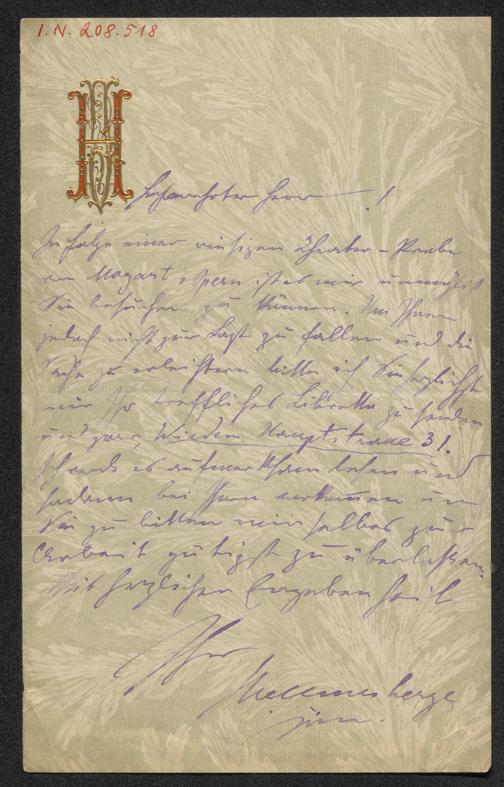 I. N. 208.518
Hochverehrter Herr — !
In Folge einer riesigen Theater-Probe
von Mozart's Opern ist es mir unmöglich
Sie besuchen zu können. Um Ihnen
jedoch nicht zur Last zu fallen und die
Sache zu erleichtern bitte ich Sie herzlichst
mir Ihr treffliches Libretto zu senden
und zwar, Wieden Hauptstrasse 31.
Ich werde es aufmerksam lesen und
sodann bei Ihnen um
Sie zu bitten mir selbes zur
Arbeit gütigst zu überlassen.
Mit herzlicher Ergebenheit
Ihr
Hellmesberger
jun.